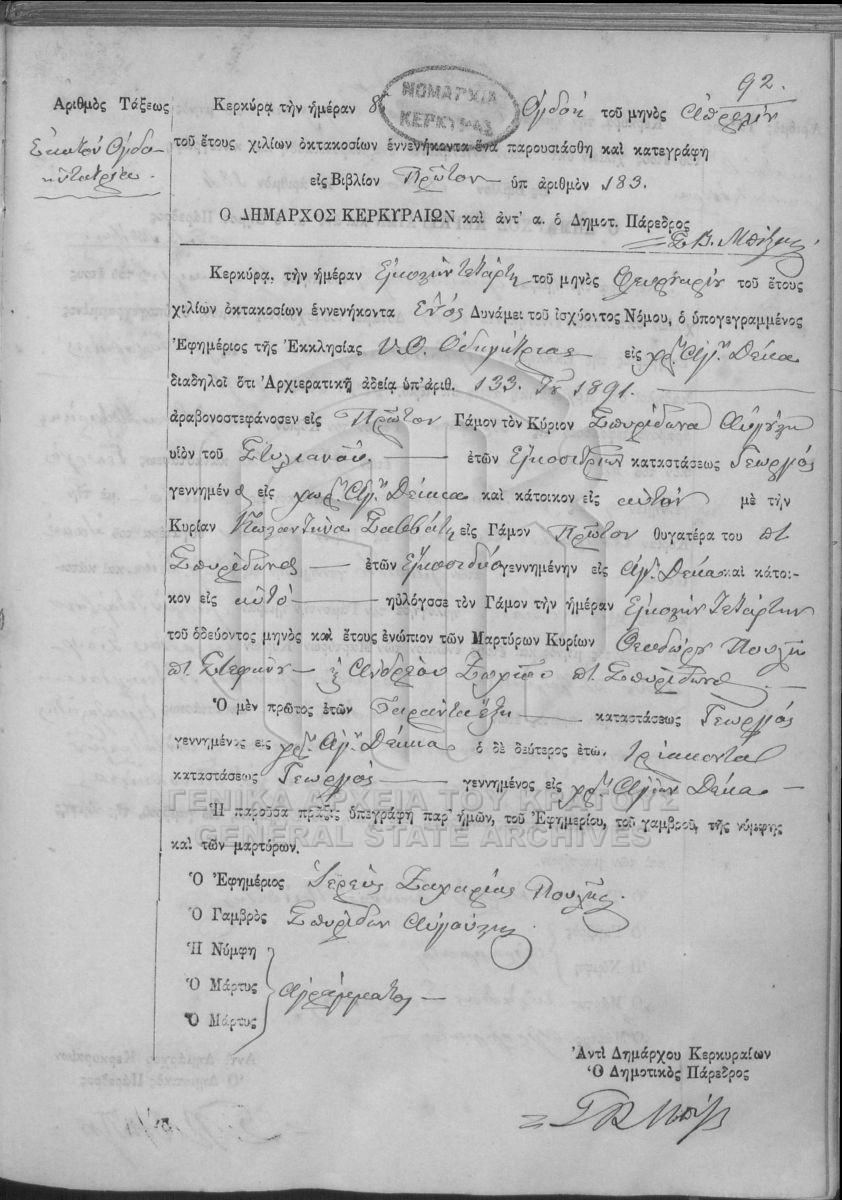 92.
Ἀριθμὸς Τάξεως
Ἑκατὸν Ὀγδο-
ηκοντατρία.
ΝΟΜΑΡΧΙΑ
ΚΕΡΚΥΡΑΣ
Κερκύρᾳ τὴν ἡμέραν 8 Ὀγδόη τοῦ μηνὸς Ἀπριλίου
τοῦ ἔτους χιλίων ὀκτακοσίων ἐννενήκοντα ἕνα παρουσιάσθη καὶ κατεγράφη
εἰς Βιβλίον Πρῶτον ὑπ ἀριθμὸν 183.
Ο ΔΗΜΑΡΧΟΣ ΚΕΡΚΥΡΑΙΩΝ καὶ ἀντ' α. ὁ Δημοτ. Πάρεδρος
Κερκύρᾳ, τὴν ἡμέραν Εἰκοστὴν τετάρτη τοῦ μηνὸς Φεβρουαρίου τοῦ ἔτους
χιλίων ὀκτακοσίων ἐννενήκοντα Ἑνὸς Δυνάμει τοῦ ἰσχύοντος Νόμου, ὁ ὑπογεγραμμένος
Ἐφημέριος τῆς Ἐκκλησίας Υ.Θ. Ὁδηγήτριας εἰς χρ. Ἁγ. Δέκα
διαδηλοῖ ὅτι Ἀρχιερατικῇ ἀδείᾳ ὑπ' ἀριθ. 133. 1891.
ἀραβονοστεφάνοσεν εἰς Πρῶτον Γάμον τὸν Κύριον Σπυρίδωνα Αὐγούλη
υἱὸν τοῦ Στυλιανοῦ. ἐτῶν Εἰκοσιτριῶν καταστάσεως Γεωργὸς
γεννημένος εἰς χωρ. Ἁγ. Δέκα καὶ κάτοικον εἰς αὐτὸν μὲ τὴν
Κυρίαν Κωλαντίνα Σαββάτη εἰς Γάμον Πρῶτον θυγατέρα του πτ
Σπυρίδωνος ἐτῶν Εἰκοσιδύο γεννημένην εἰς Ἁγ. Δέκα καὶ κάτοι-
κον εἰς αὐτὸ ηὐλόγσσε τὸν Γάμον τὴν ἡμέραν Εἰκοστὴν Τετάρτην
τοῦ ὁδεύοντος μηνὸς καὶ ἔτους ἐνώπιον τῶν Μαρτύρων Κυρίων Θεοδώρου Πουλῆ
πτ Στεφάνου ἢ Ἀνδρέου πτ Σπυρίδωνος
Ὁ μὲν πρῶτος ἐτῶν Σαράντα ἕξη καταστάσεως Γεωργὸς
γεννημένος εἰς χρ. Ἁγ. Δέκα ὁ δὲ δεύτερος ἐτῶ. τριάκοντα
καταστάσεως Γεωργὸς γεννημένος εἰς χρ. Ἁγίων Δέκα
ΓΕΝΙΚΑ ΑΡΧΕΙΑ ΤΟΥ ΚΡΑΤΟΥΣ
Ἡ παροῦσα πρᾶξις ὑπεγράφη παρ' ἡμῶν, τοῦ Ἐφημερίου, τοῦ γαμβροῦ, τῆς νύμφης
GENERAL STATE ARCHIVES
καὶ τῶν μαρτύρων.
Ὁ Ἐφημέριος Ἱερεὺς Ζαχαρίας Πουλῆς.
Ὁ Γαμβρὸς Σπυρίδων Αὐγούλης
Ἡ Νύμφη
Ὁ Μάρτυς Ἀγράμματοι
Ὁ Μάρτυς
Ἀντὶ Δημάρχου Κερκυραίων
Ὁ Δημοτικὸς Πάρεδρος